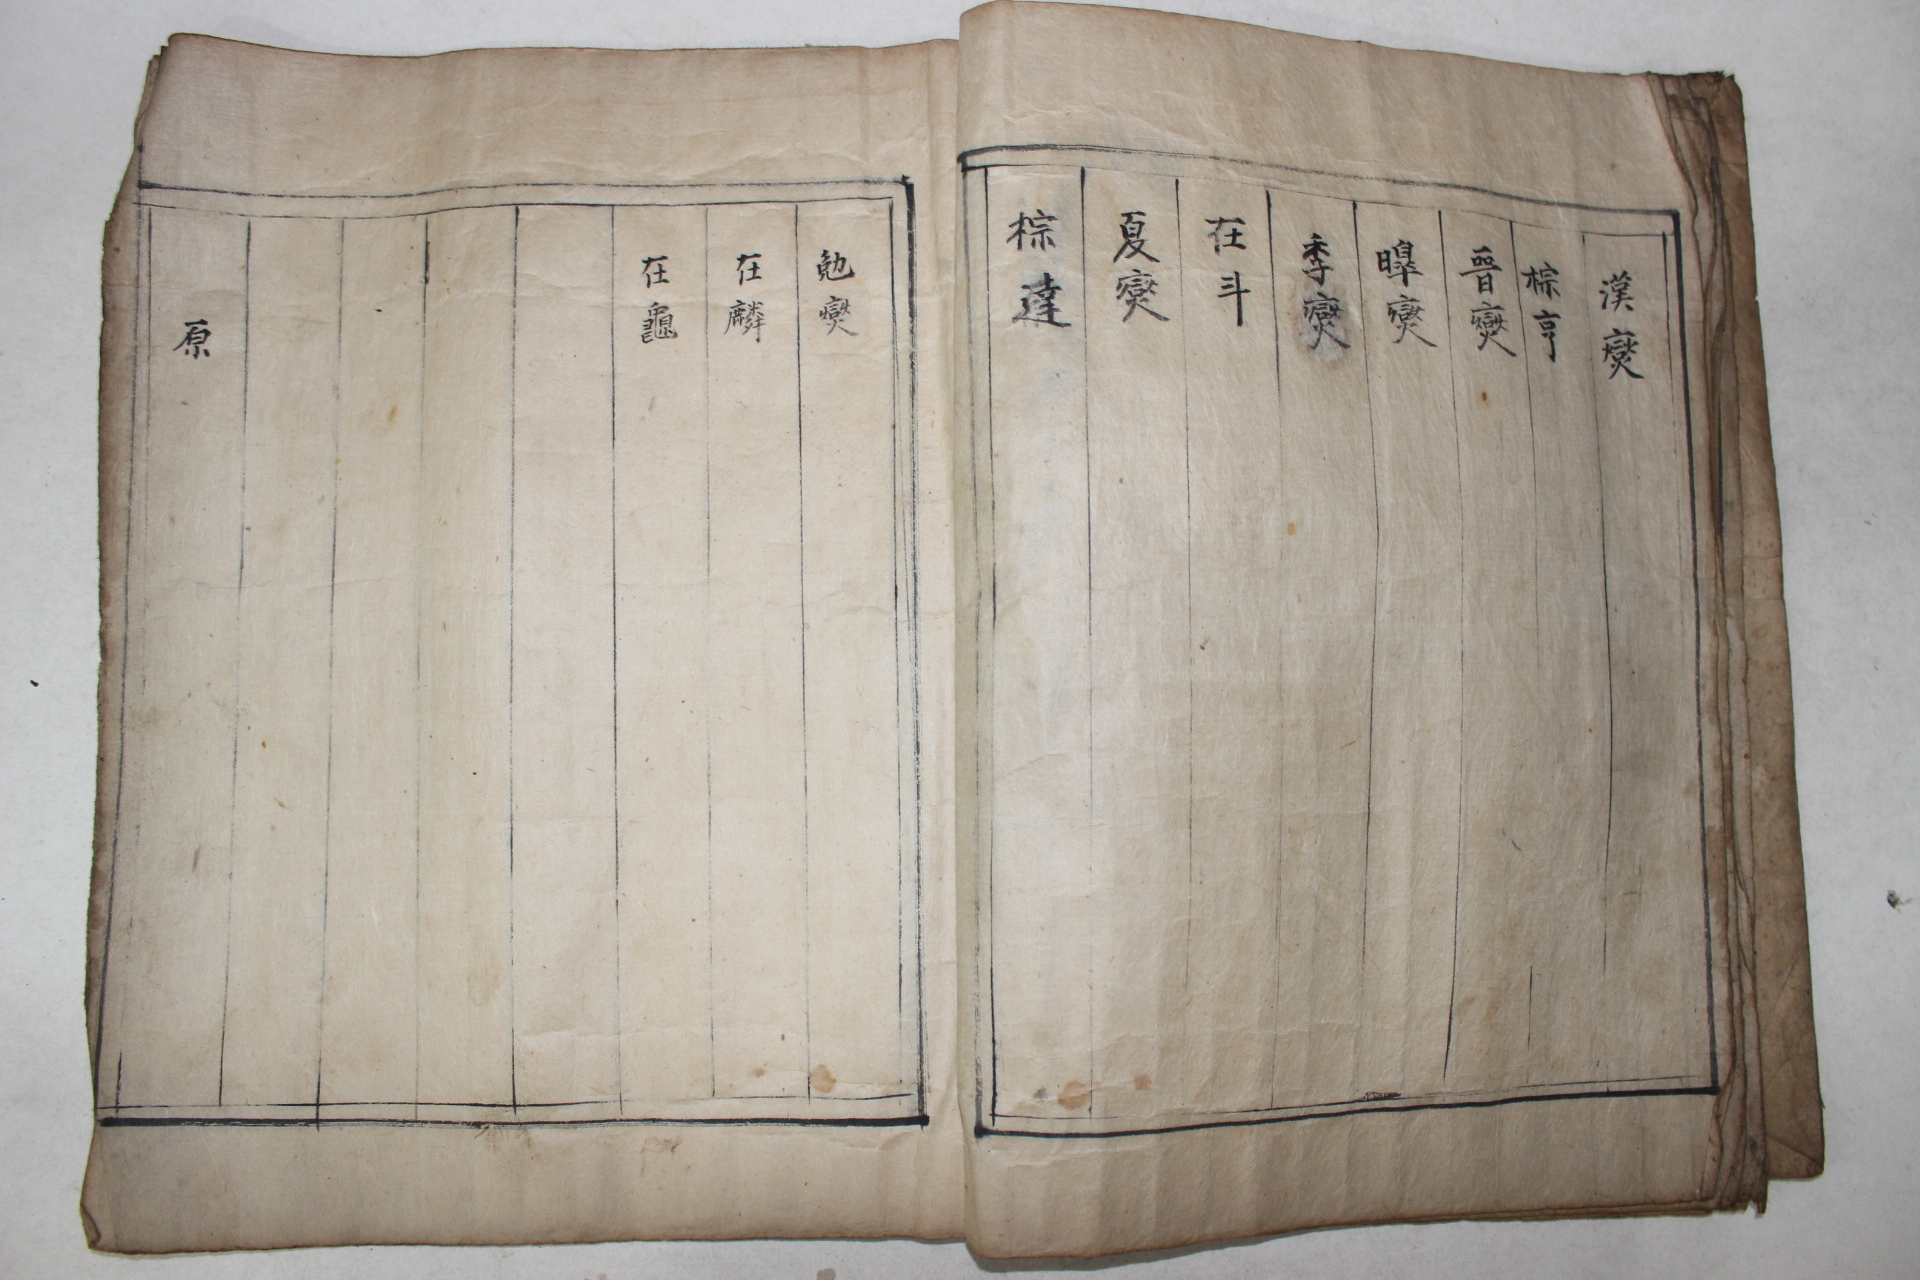 漢燮
棕亨
晉燮
皥燮
季燮
在斗
夏燮
棕達
勉燮
在麟
在龜
原